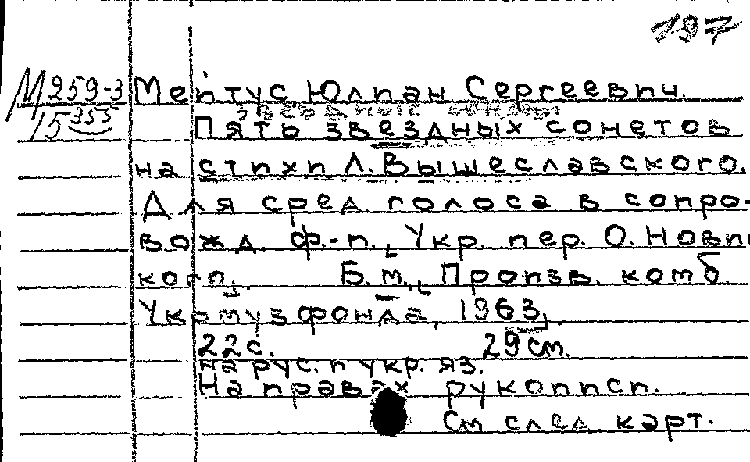 197
М 259-3 Мейтус Юлиан Сергеевич.
15 355 звездные сонеты
Пять звездных сонетов
на стихи Л. Вышеславского.
Для сред. голоса в сопро-
вожд. ф.-п., Укр. пер. О. Нови-
кого. Б.м., Произв. комб
Укрмузфонда, 1963,
22с. 29см.
На рус. и укр. яз.
На правах рукописи.
См след карт.